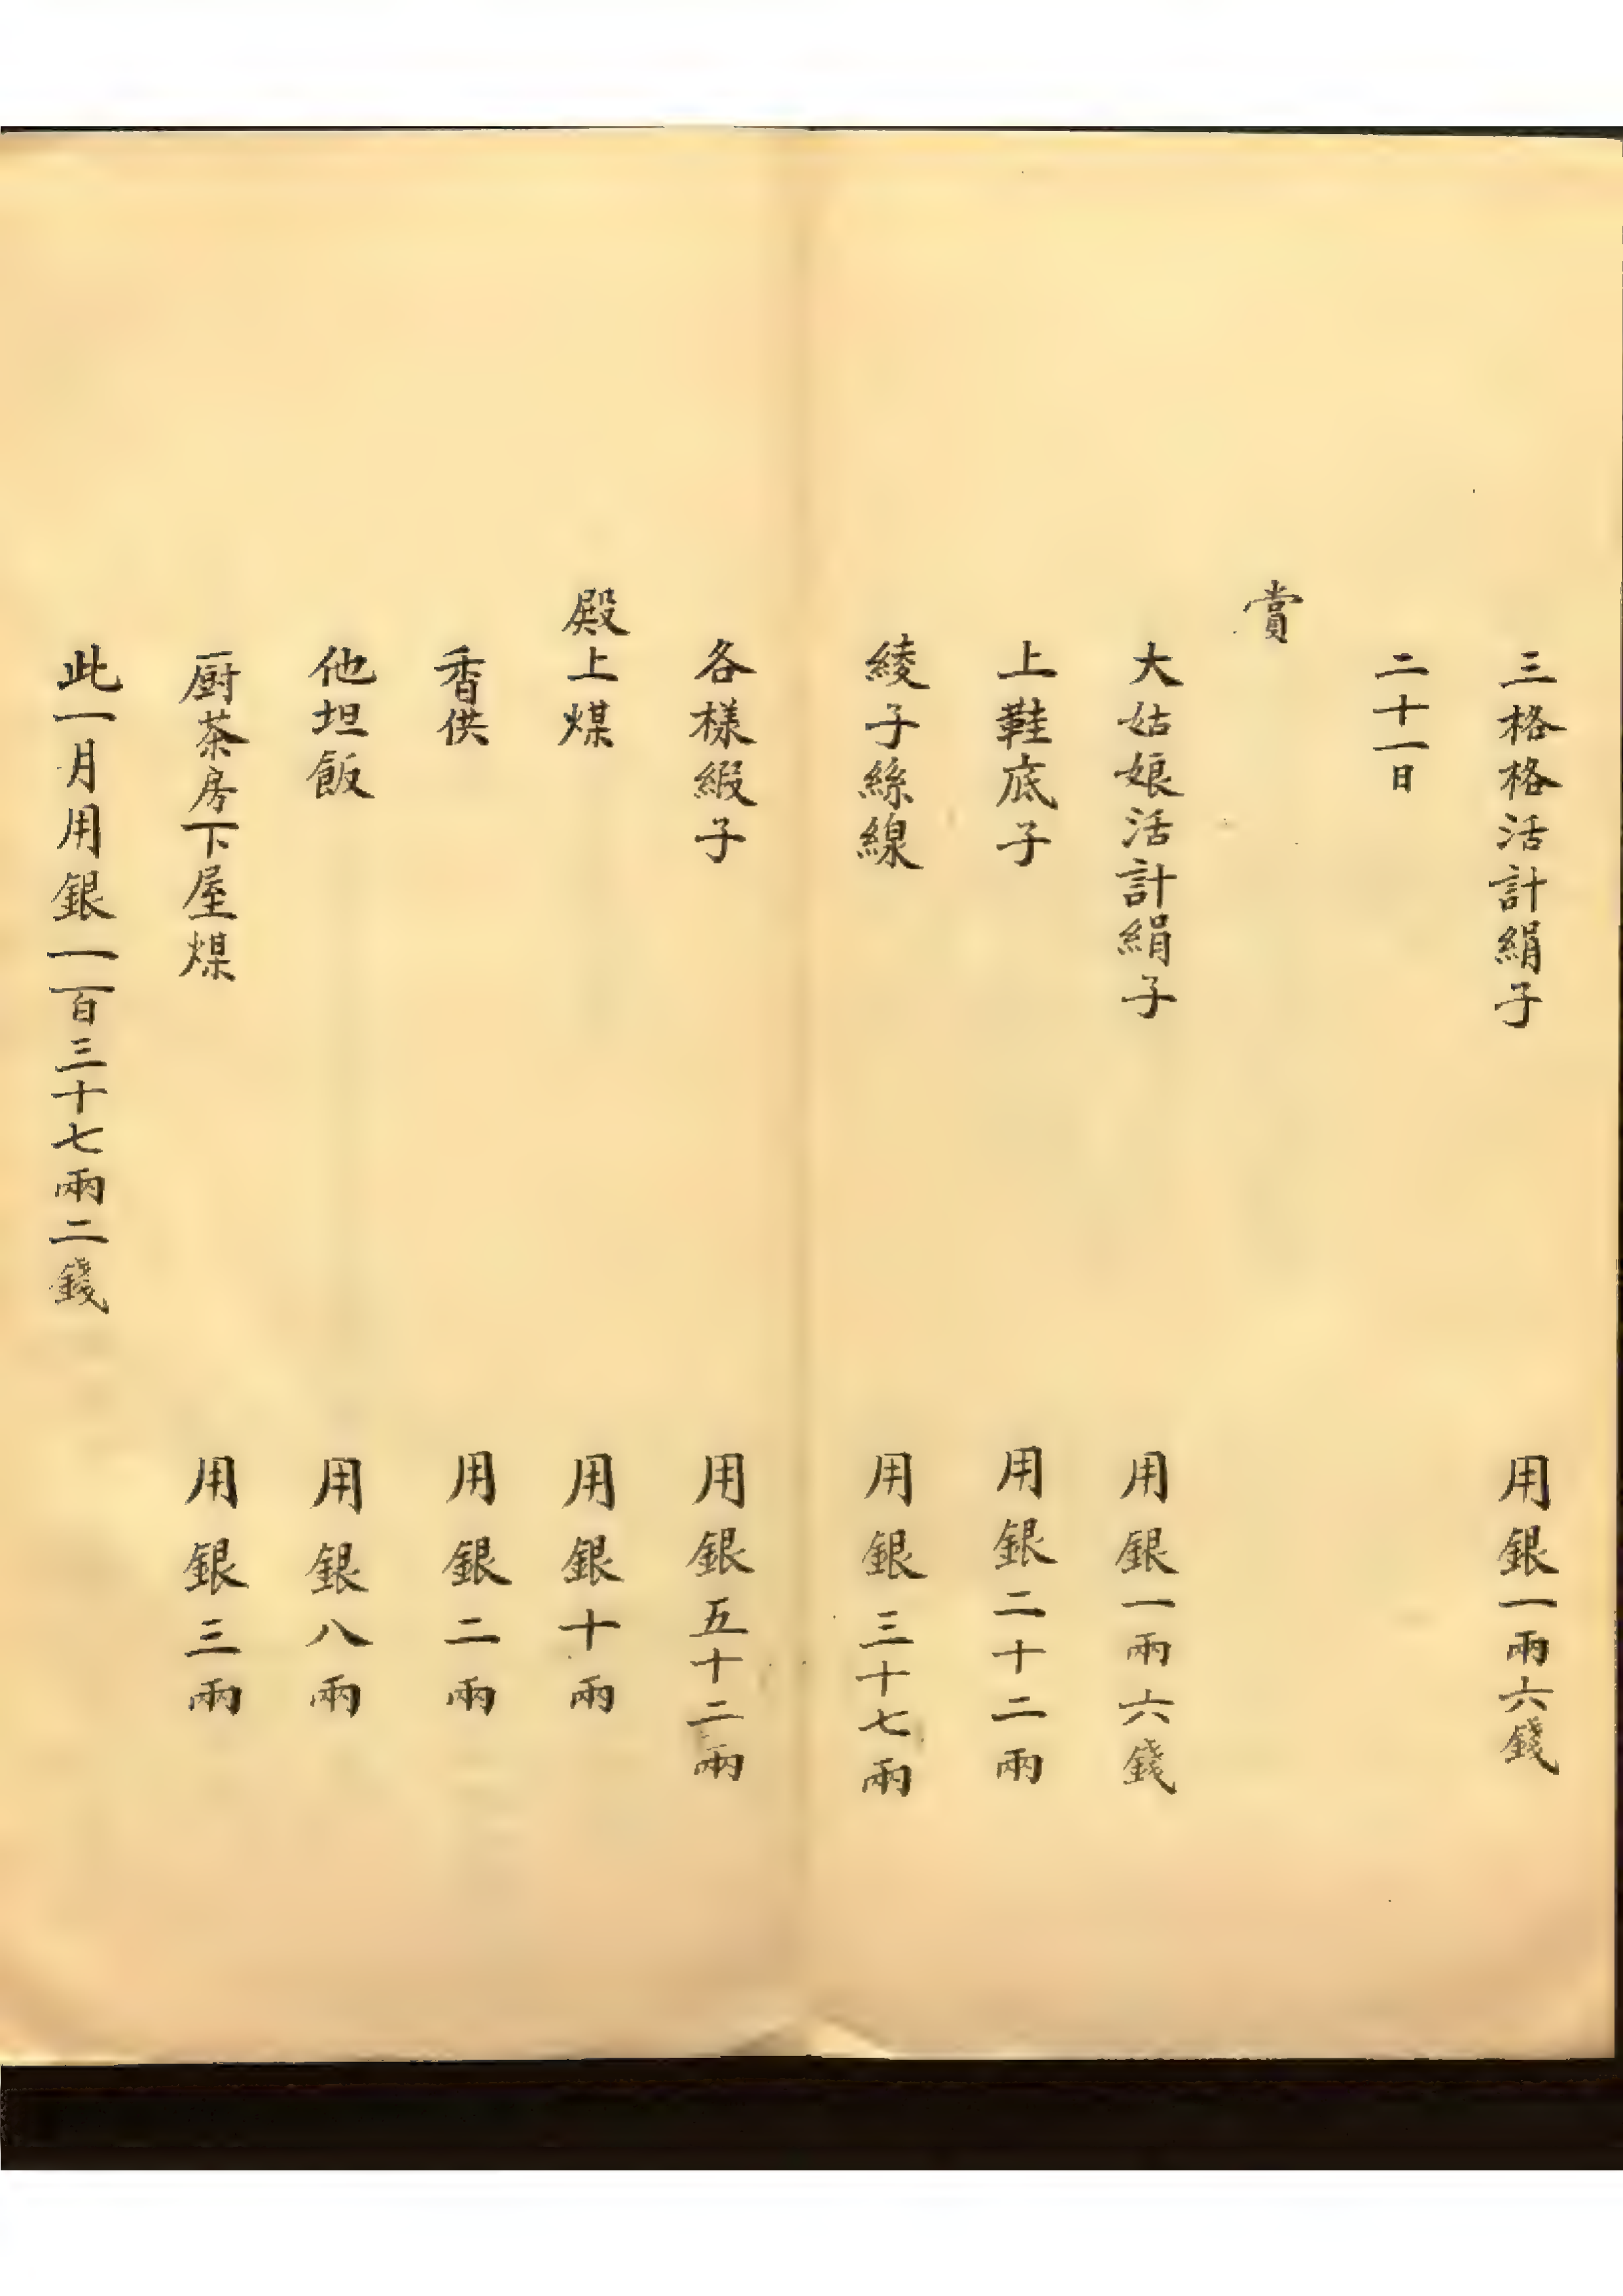 三格格活計絹子 用銀一兩六錢
二十一日
賞
大姑娘活計絹子 用銀一兩六錢
上鞋底子 用銀二十二兩
綾子絲線 用銀三十七兩
各樣緞子 用銀五十二兩
殿上煤 用銀十兩
香供 用銀二兩
他坦飯 用銀八兩
厨茶房下屋煤 用銀三兩
此一月用銀一百三十七兩二錢